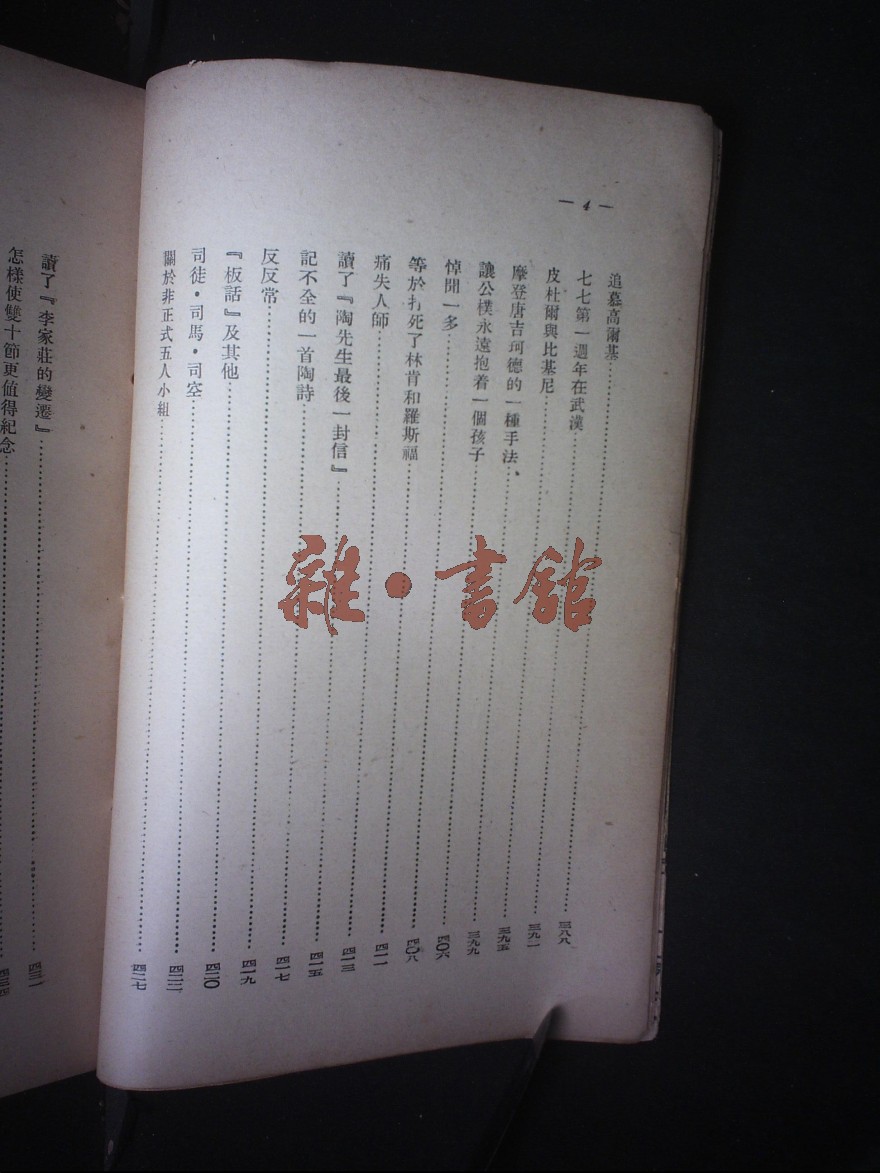 — 4 —
追慕高爾基……三八八
七七第一週年在武漢……三九二
皮杜爾與比基尼……三九五
摩登唐吉珂德的一種手法、……三九九
讓公樸永遠抱着一個孩子……四〇六
悼聞一多……四〇八
等於打死了林肯和羅斯福……四一一
痛失人師……四一三
讀了『陶先生最後一封信』……四一五
記不全的一首陶詩……四一七
反反常……四一九
『板話』及其他……四二〇
司徒・司馬・司空……四二三
關於非正式五人小組……四二七
讀了『李家莊的變遷』……四三一
怎樣使雙十節更值得紀念……
雜・書館